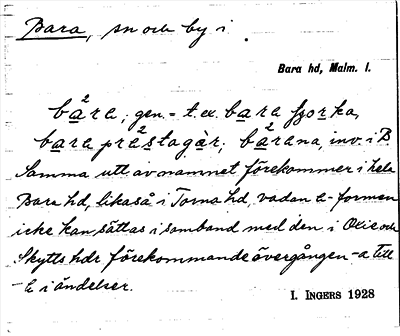 Bara, sn och by i
Bara hd, Malm. l.
ba²rɐ; gen. = t. ex. bara kjorka,
bara prä²stagàr; ba²rɐna, inv. i B.
Samma utt. av namnet förekommer i hela
Bara hd, likaså i Torna hd, vadan ɐ-formen
icke kan sättas i samband med den i Oxie och
Skytts hdr förekommande övergången -a till
-ɐ i ändelser.
I. INGERS 1928